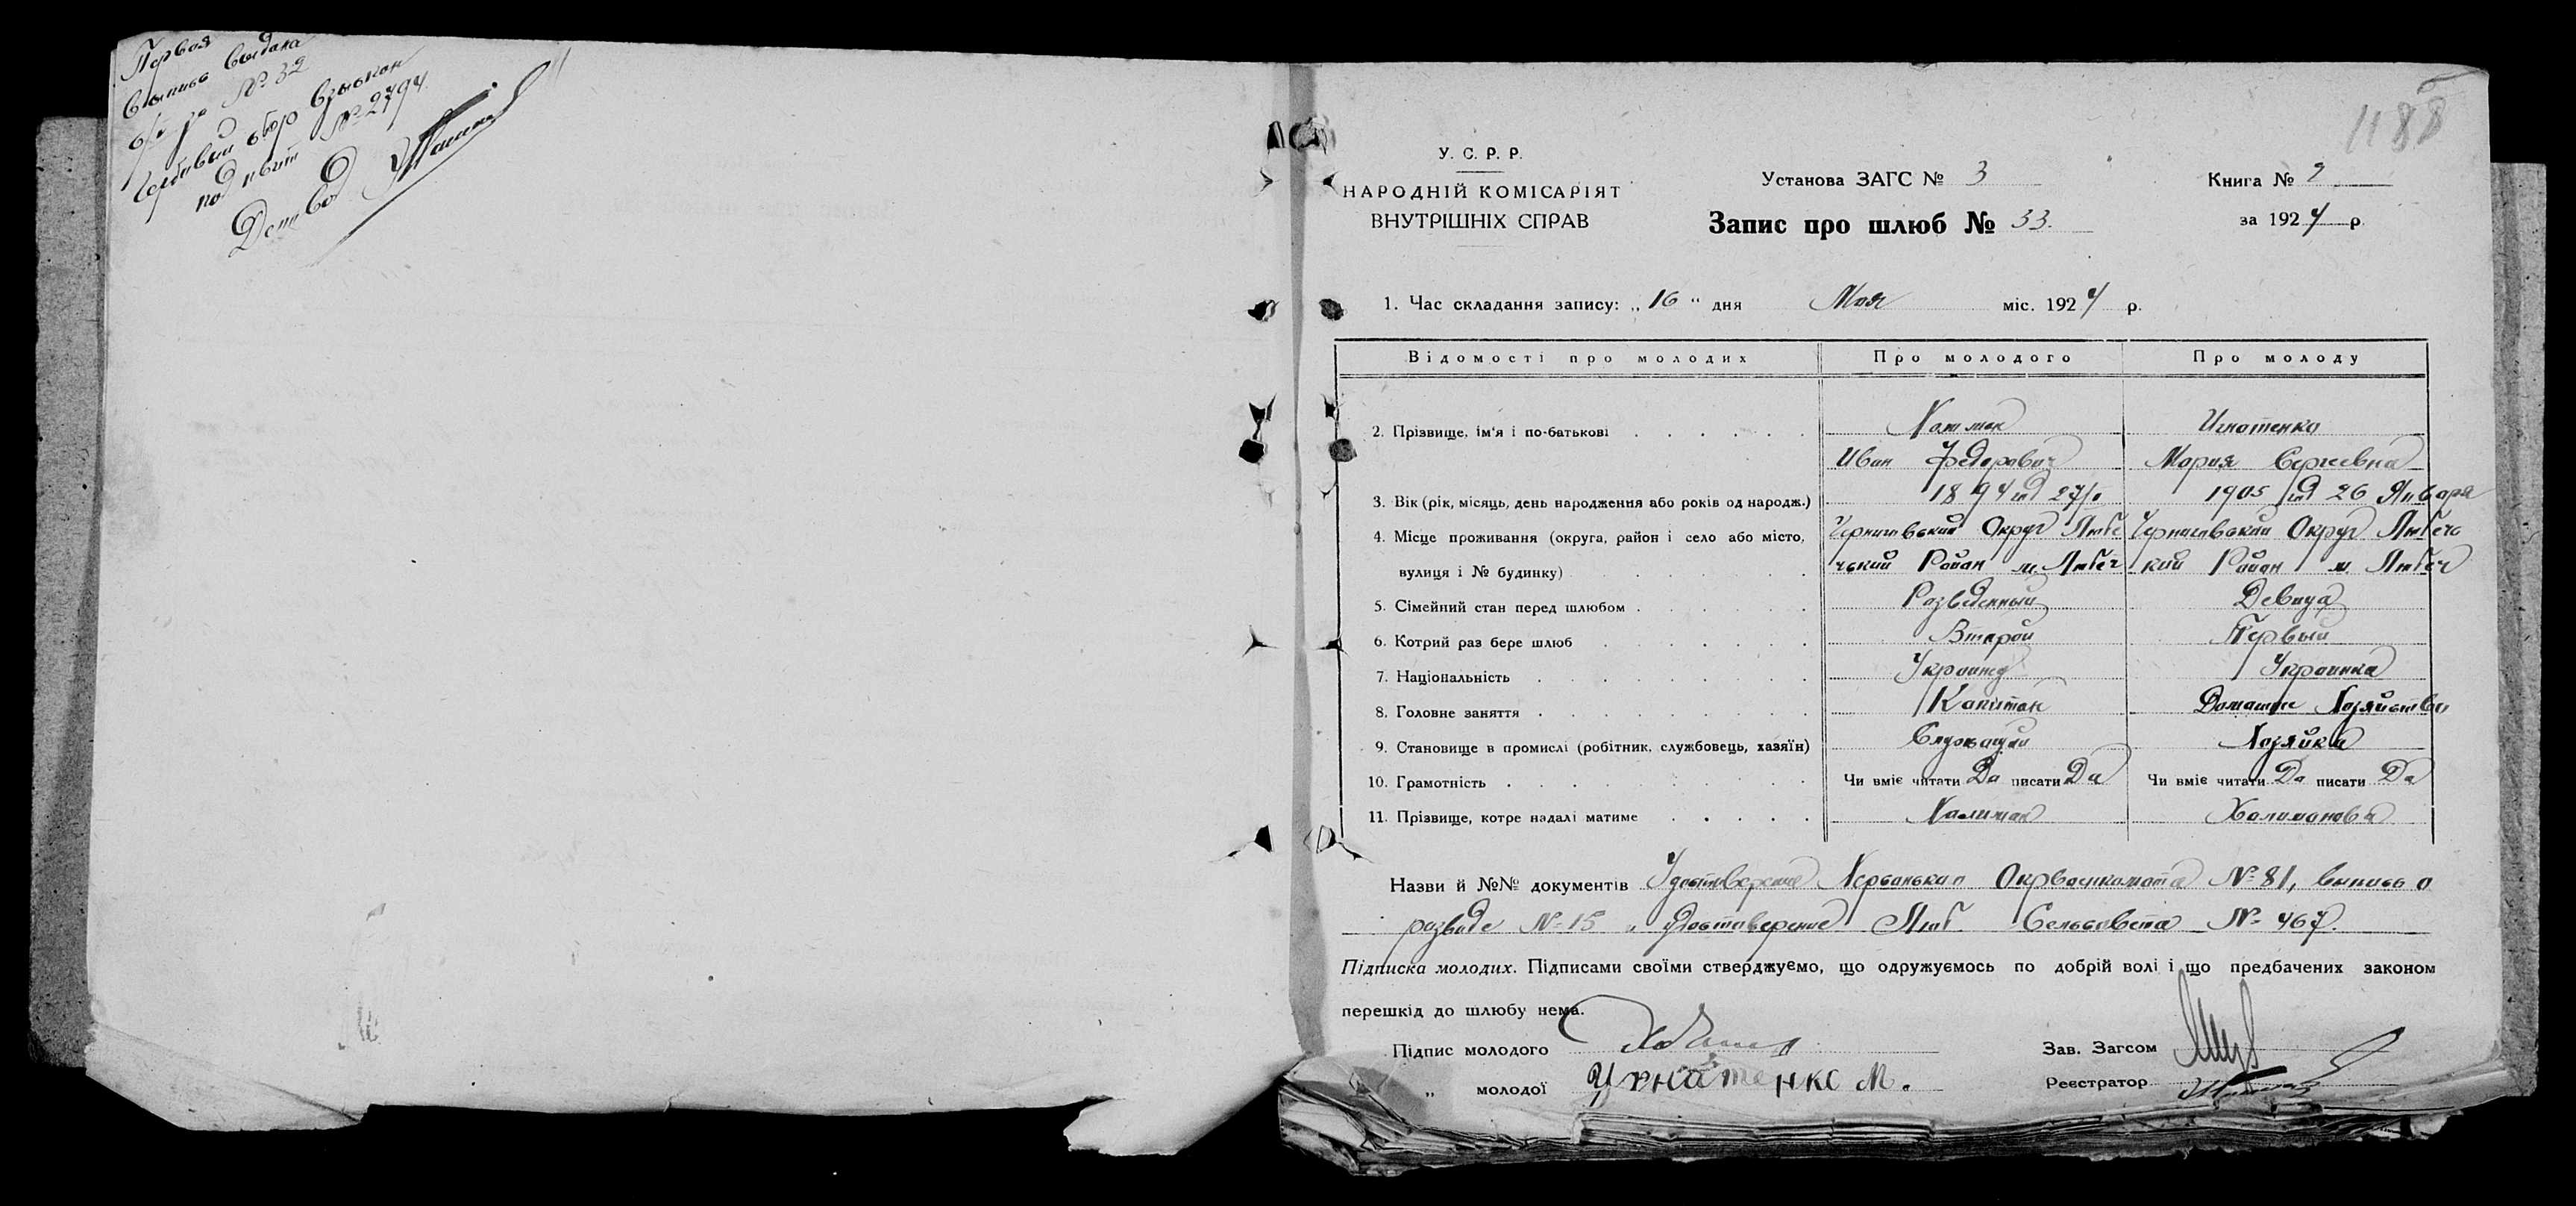 Первая
выпись выдана
за № 32
Гербовый сбор взыскан
под квит № 2794
1188
У. С. Р. Р.
НАРОДНІЙ КОМІСАРІЯТ
ВНУТРІШНІХ СПРАВ
Установа ЗАГС № 3
Запис про шлюб № 33.
Книга № 2
за 1924 р.
1. Час складання запису: „ 16 " дня Мая міс. 1924 р.
Відомості про молодих Про молодого Про молоду
2. Прізвище, ім'я і по-батькові Холиман Игнатенко
Иван Федорович Мария Сергеевна
3. Вік (рік, місяць, день народження або років од народж.) 1894 год 27/ 1905 год 26 Января
4. Місце проживання (округа, район і село або місто, Черниговский Округ Любе Черниговский Округ Любечс
вулиця і № будинку) чский Район м. Любеч кий Район м. Любеч
5. Сімейний стан перед шлюбом Разведенный Девица
6. Котрий раз бере шлюб Второй Первый
7. Національність Украинец Украинка
8. Головне заняття Капитан Домашнее Хозяйство
9. Становище в промислі (робітник, службовець, хазяїн) Служащий Хозяйка
10. Грамотність Чи вміє читати Да писати Да Чи вміє читати Да писати Да
11. Прізвище, котре надалі матиме Холиман Холиманова
Назви й №№ документів Удостоверение Херсонского Окрвоенкомата № 81, выпись о
разводе № 15 и удостоверение Люб. Сельсовета № 467.
Підписка молодих. Підписами своїми стверджуємо, що одружуємось по добрій волі і що предбачених законом
перешкід до шлюбу нема.
Підпис молодого
Зав. Загсом
„ молодої Игнатенко М.
Реєстратор